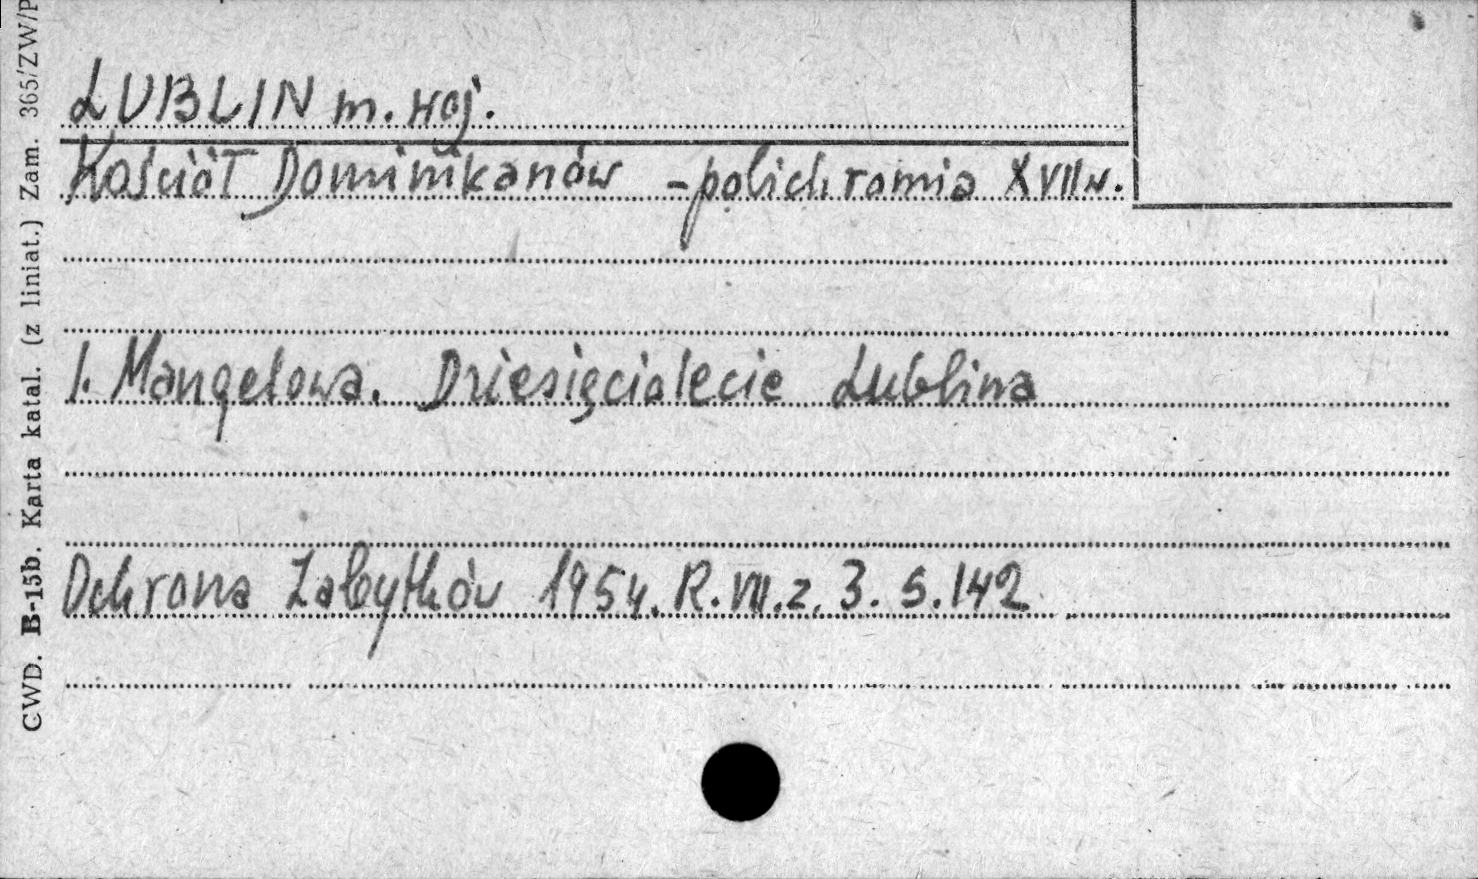 LUBLIN m. woj.
Kościół Dominikanów - polichromia XVII w.
I. Mangelowa. Dziesięciolecie Lublina
Ochrona Zabytków 1954. R. VII. z. 3. s. 142
CWD. B-15b. Karta katal. (z liniat.) Zam. 365/ZW/P